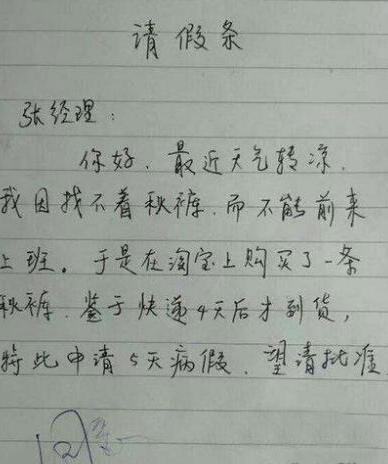 请假条
张经理：
你好．最近天气转凉．
我因找不着秋裤．而不能前来
上班。于是在淘宝上购买了一条
秋裤．鉴于快递4天后才到货，
特此申请5天病假．望请批准